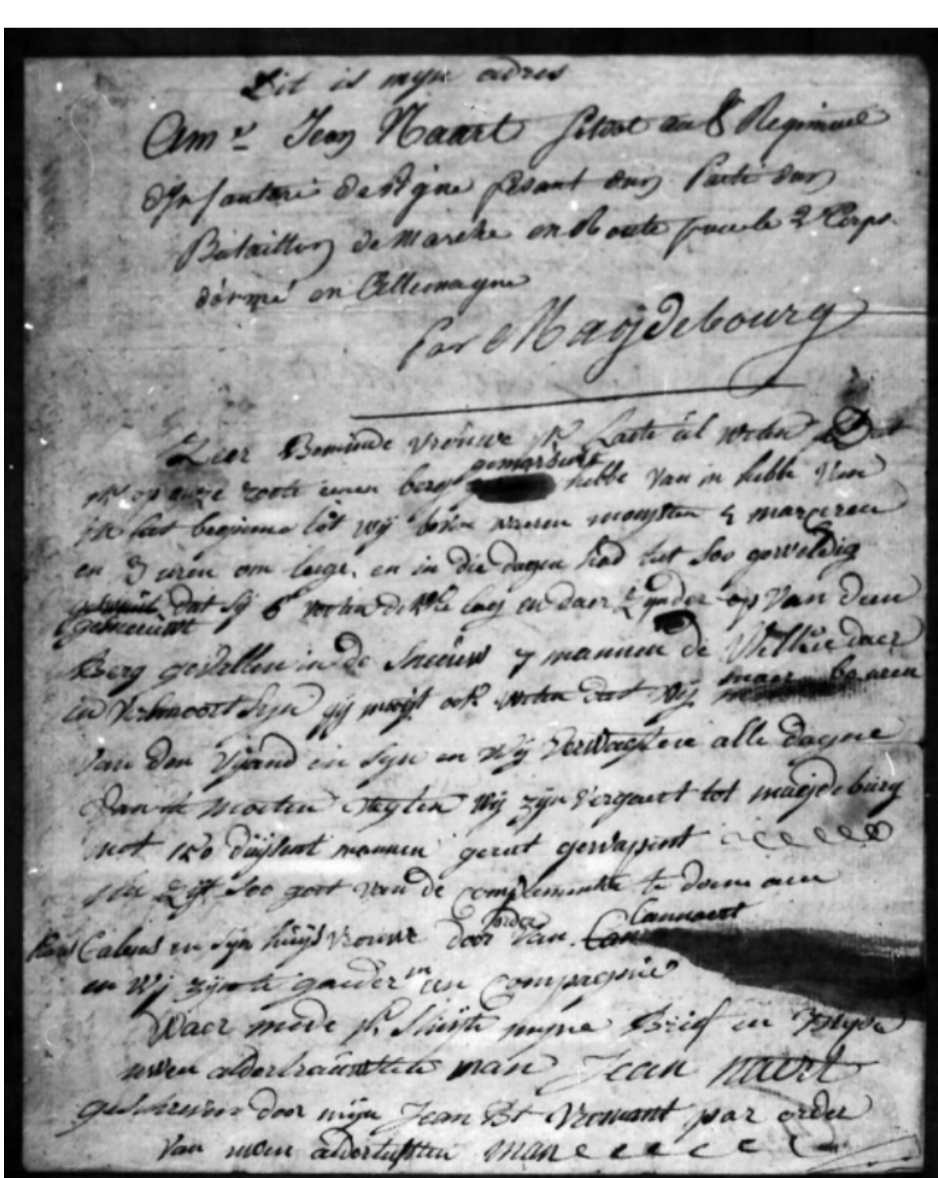 Dit is myn adres
A mr Jean Naart soldat au 8 Regiment
d'Infanterie de ligne fesant dun Partie dun
Bataillon de Marche en Route pour le 2 Corps
d'armé en Allemagne
par Magdebourg
Zeer Beminde vrouwe ik Laete ul weten Dat
ik op onze roote eenen berg gemarseert hebbe van
het beginne tot wij boven waeren moesten 4 marceren
en 3 uren om leege. en in die dagen had het soo geweldig
gesneeuwt dat sij 6 voeten dikke lag en daer zynder op van deen
Berg gevallen in de sneeuw 7 mannen de Welke daer
in versmoort syn gij moogt ook weten dat wij maer 6 uren
van den vijand en syn en wy verwagten alle dagen
dan te moeten wij zijn vergaert tot magdeburg
met 150 duysent mannen gewapent
soo goet van de complementen te doen aen
Calens en syn huysvrouwe door order van Cannaert
en wij zijn te gaeder in een Compagnie
Waer mede ik sluyte mynen Brief en blyve
uwen alderbraefsten man Jean naert
geschreven door mijn Jean Bt Vromant par order
van uwen alderliefsten man